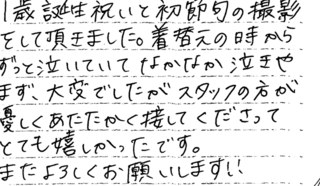 1歳誕生祝いと初節句の撮影
をして頂きました。着替えの時から
ずっと泣いていてなかなか泣きや
まず、大変でしたがスタッフの方が
優しくあたたかく接してくださって
とても嬉しかったです。
またよろしくお願いします!!